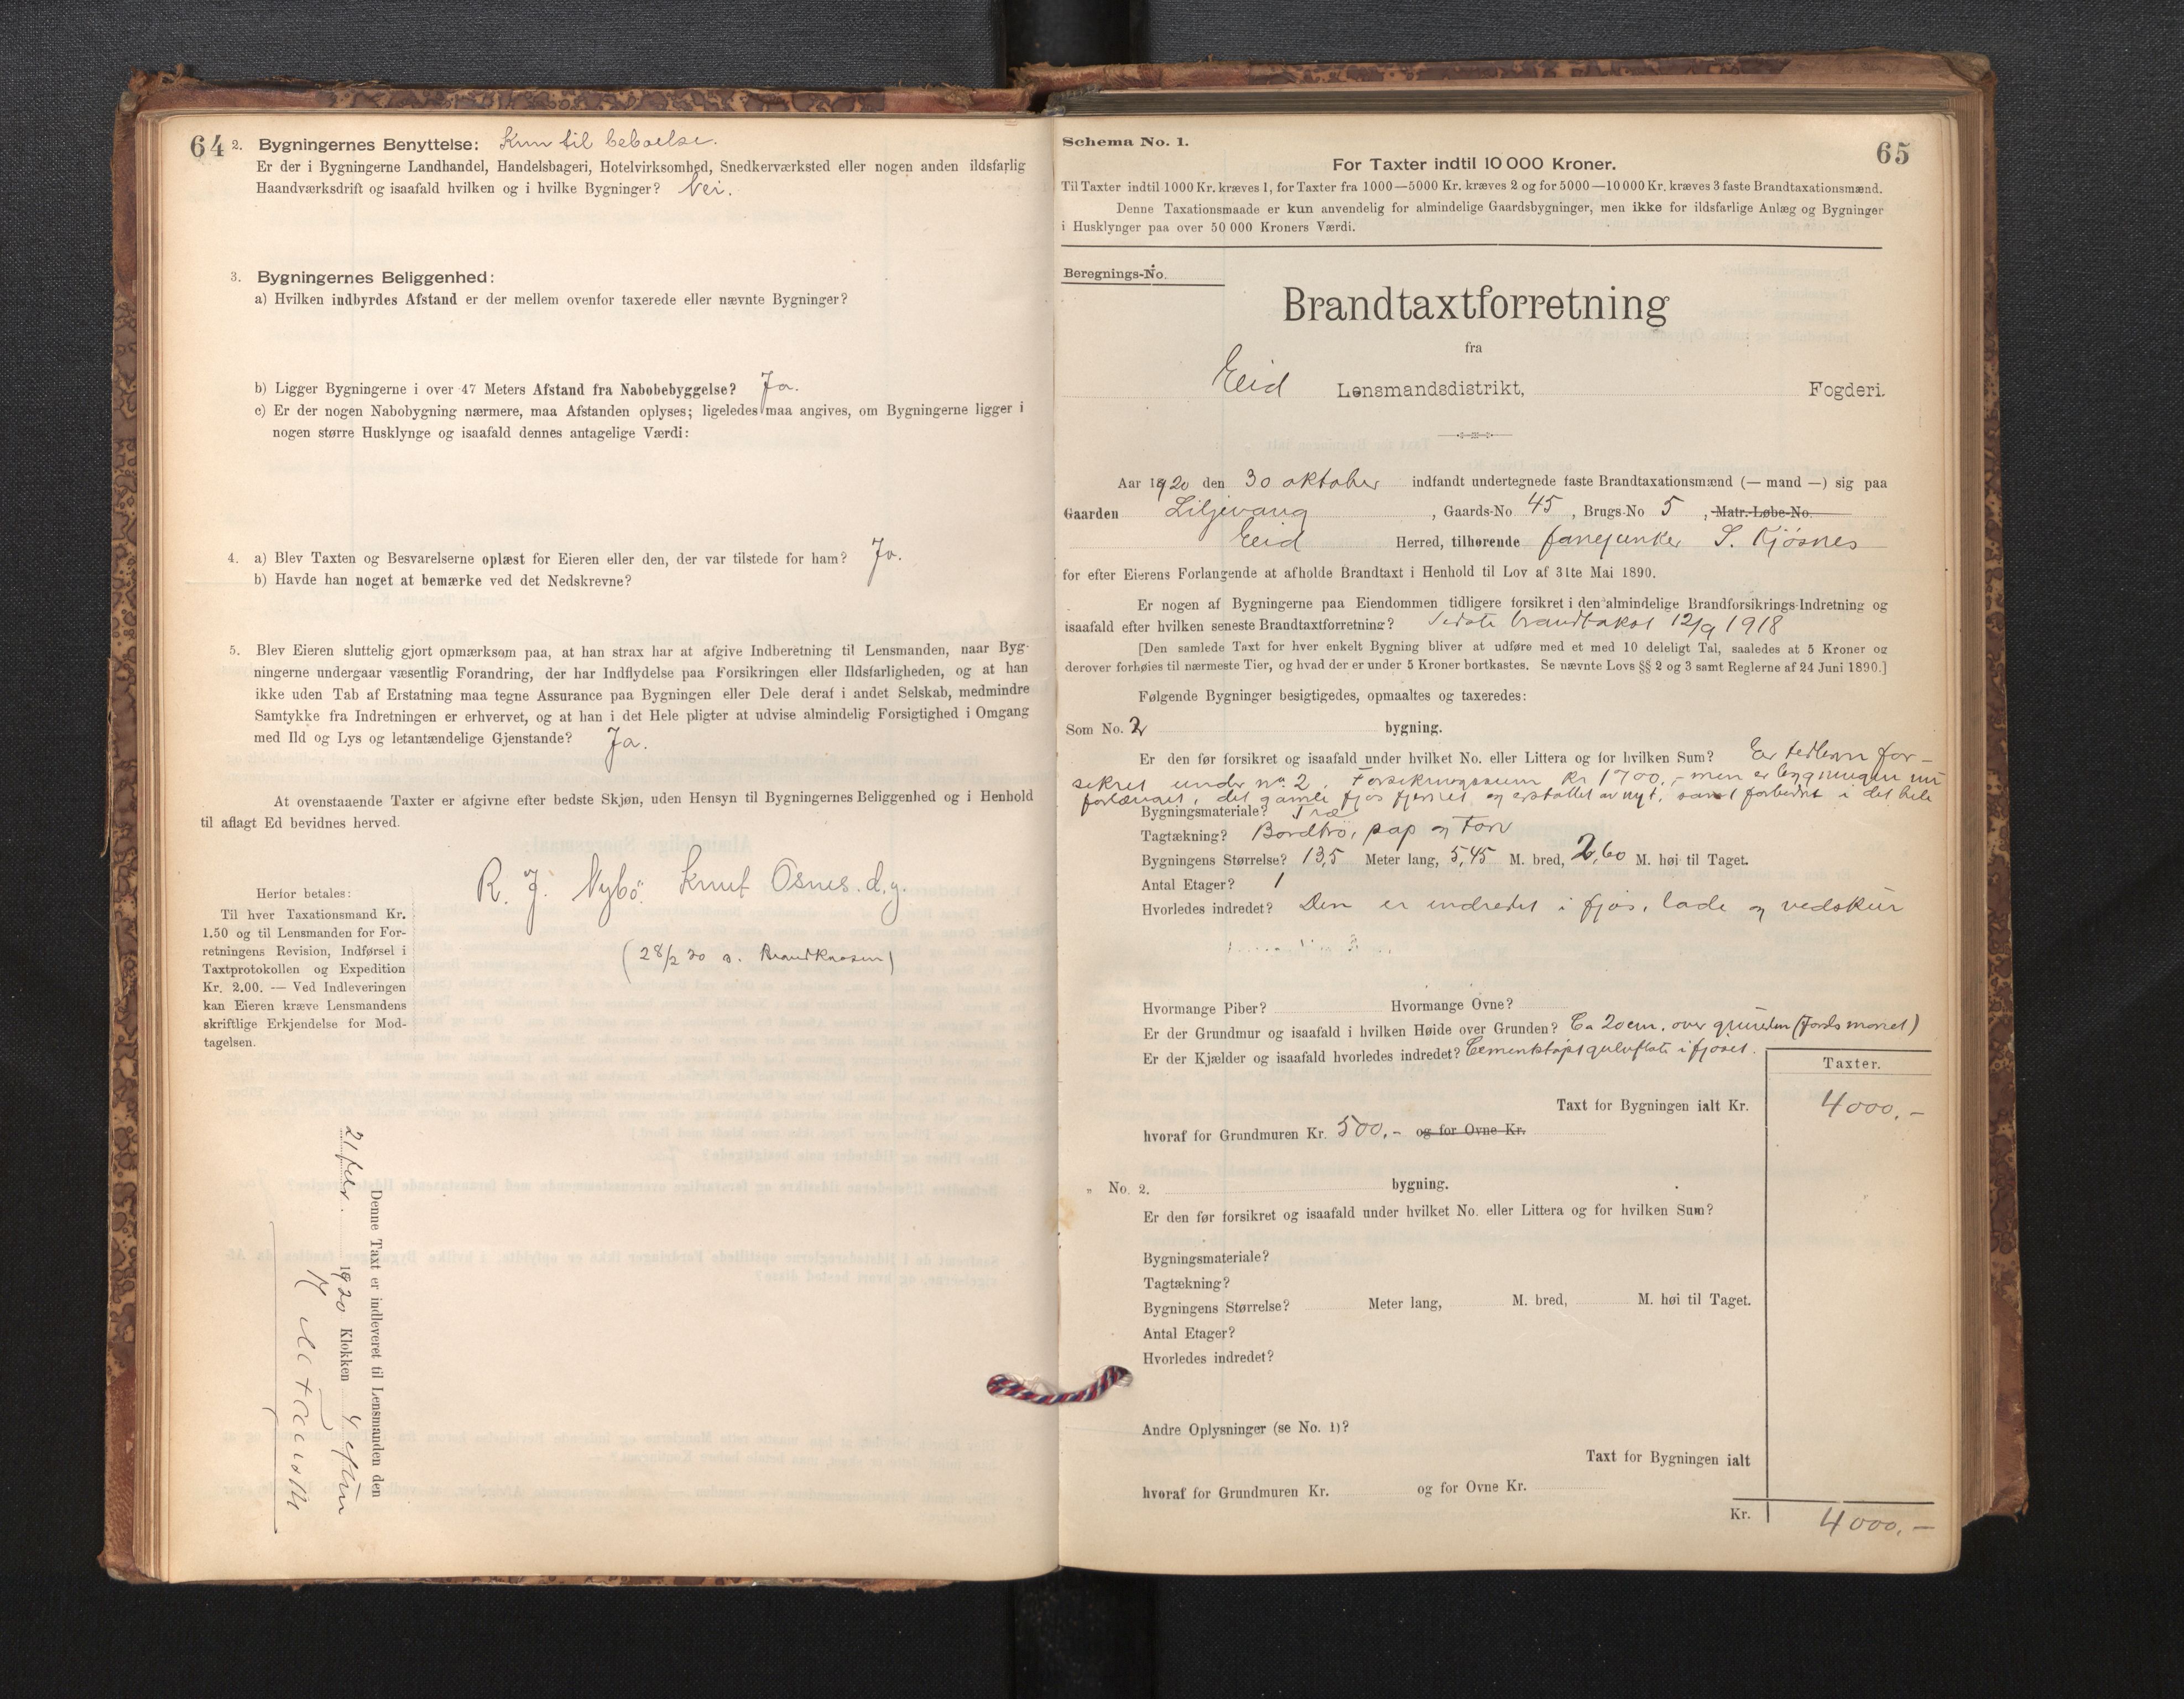 64
2. Bygningernes Benyttelse: Kun til beboelse.
Er der i Bygningerne Landhandel, Handelsbageri, Hotelvirksomhed, Snedkerværksted eller nogen anden ildsfarlig
Haandværksdrift og isaafald hvilken og i hvilke Bygninger? Nei.
3. Bygningernes Beliggenhed:
a) Hvilken indbyrdes Afstand er der mellem ovenfor taxerede eller nævnte Bygninger?
b) Ligger Bygningerne i over 47 Meters Afstand fra Nabobebyggelse? Ja.
c) Er der nogen Nabobygning nærmere, maa Afstanden oplyses; ligeledes maa angives, om Bygningerne ligger i
nogen større Husklynge og isaafald dennes antagelige Værdi:
4. a) Blev Taxten og Besvarelserne oplæst for Eieren eller den, der var tilstede for ham? Ja.
b) Havde han noget at bemærke ved det Nedskrevne?
5. Blev Eieren sluttelig gjort opmærksom paa, at han strax har at afgive Indberetning til Lensmanden, naar Byg-
ningerne undergaar væsentlig Forandring, der har Indflydelse paa Forsikringen eller Ildsfarligheden, og at han
ikke uden Tab af Erstatning maa tegne Assurance paa Bygningen eller Dele deraf i andet Selskab, medmindre
Samtykke fra Indretningen er erhvervet, og at han i det Hele pligter at udvise almindelig Forsigtighed i Omgang
med Ild og Lys og letantændelige Gjenstande? Ja.
At ovenstaaende Taxter er afgivne efter bedste Skjøn, uden Hensyn til Bygningernes Beliggenhed og i Henhold
til aflagt Ed bevidnes herved.
R. J. Nybö. Knut Osnes. d.y.
(28/2 20 s. Brandkassen)
Herfor betales:
Til hver Taxationsmand Kr.
1.50 og til Lensmanden for For-
retningens Revision, Indførsel i
Taxtprotokollen og Expedition
Kr. 2.00. — Ved Indleveringen
kan Eieren kræve Lensmandens
skriftlige Erkjendelse for Mod-
tagelsen.
Denne Taxt er indleveret til Lensmanden den
21 febr. 1920 Klokken 4 eftm
65
Schema No. 1.
For Taxter indtil 10 000 Kroner.
Til Taxter indtil 1000 Kr. kræves 1, for Taxter fra 1000—5000 Kr. kræves 2 og for 5000—10 000 Kr. kræves 3 faste Brandtaxationsmænd.
Denne Taxationsmaade er kun anvendelig for almindelige Gaardsbygninger, men ikke for ildsfarlige Anlæg og Bygninger
i Husklynger paa over 50 000 Kroners Værdi.
Beregnings-No.
Brandtaxtforretning
fra
Eid Lensmandsdistrikt, Fogderi.
Aar 1920 den 30 oktober indfandt undertegnede faste Brandtaxationsmænd (— mand —) sig paa
Gaarden Liljevang, Gaards-No 45, Brugs-No 5, Matr.-Løbe-No.
Eid Herred, tilhørende fanejunker S. Kjösnes
for efter Eierens Forlangende at afholde Brandtaxt i Henhold til Lov af 31te Mai 1890.
Er nogen af Bygningerne paa Eiendommen tidligere forsikret i den almindelige Brandforsikrings-Indretning og
isaafald efter hvilken seneste Brandtaxtforretning? Sidste brandtakst 12/9 1918
[Den samlede Taxt for hver enkelt Bygning bliver at udføre med et med 10 deleligt Tal, saaledes at 5 Kroner og
derover forhøies til nærmeste Tier, og hvad der er under 5 Kroner bortkastes. Se nævnte Lovs §§ 2 og 3 samt Reglerne af 24 Juni 1890.]
Følgende Bygninger besigtigedes, opmaaltes og taxeredes:
Som No. 2 bygning.
Er den før forsikret og isaafald under hvilket No. eller Littera og for hvilken Sum? Er tidligere for-
sikret under no. 2. Forsikringssum kr 1700,- men er bygningen nu
forlænget, det gamle fjøs fjernet og erstattet av nyt, samt forbedret i det hele
Bygningsmateriale? Træ
Tagtækning? Bordtrö, pap og Torv
Bygningens Størrelse? 13,5 Meter lang, 5,45 M. bred, 2,60 M. høi til Taget.
Antal Etager? 1
Hvorledes indredet? Den er indredet i fjøs, lade og vedskur
Hvormange Piber? Hvormange Ovne?
Er der Grundmur og isaafald i hvilken Høide over Grunden? Ca 20 cm. over grunden (Jordsmonet)
Er der Kjælder og isaafald hvorledes indredet? Cementstøpt gulvflate i fjøset.
Taxter.
Taxt for Bygningen ialt Kr. 4000.-
hvoraf for Grundmuren Kr. 500.- og for Ovne Kr.
" No. 2. bygning.
Er den før forsikret og isaafald under hvilket No. eller Littera og for hvilken Sum?
Bygningsmateriale?
Tagtækning?
Bygningens Størrelse? Meter lang, M. bred, M. høi til Taget.
Antal Etager?
Hvorledes indredet?
Andre Oplysninger (se No. 1)?
Taxt for Bygningen ialt
hvoraf for Grundmuren Kr. og for Ovne Kr.
Kr. 4000.-